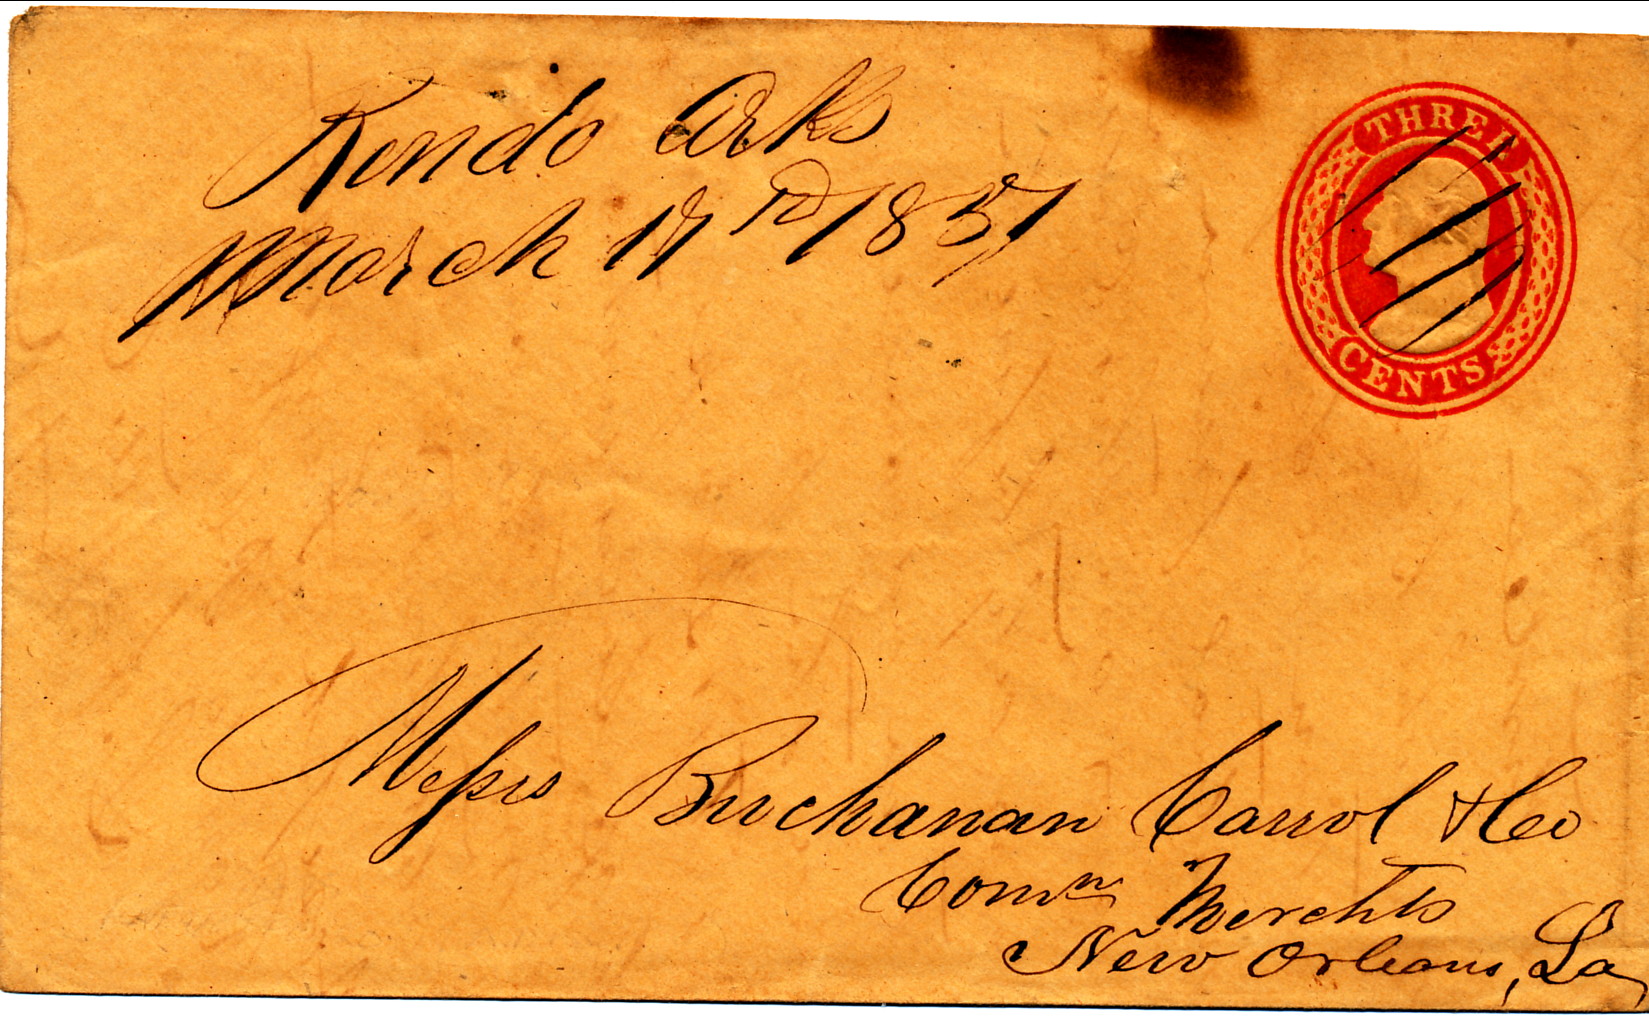 Rondo Arks
March 17th 1857
THREE
CENTS
Messrs Buchanan Carrol & Co
Comn Merchts
New Orleans, La